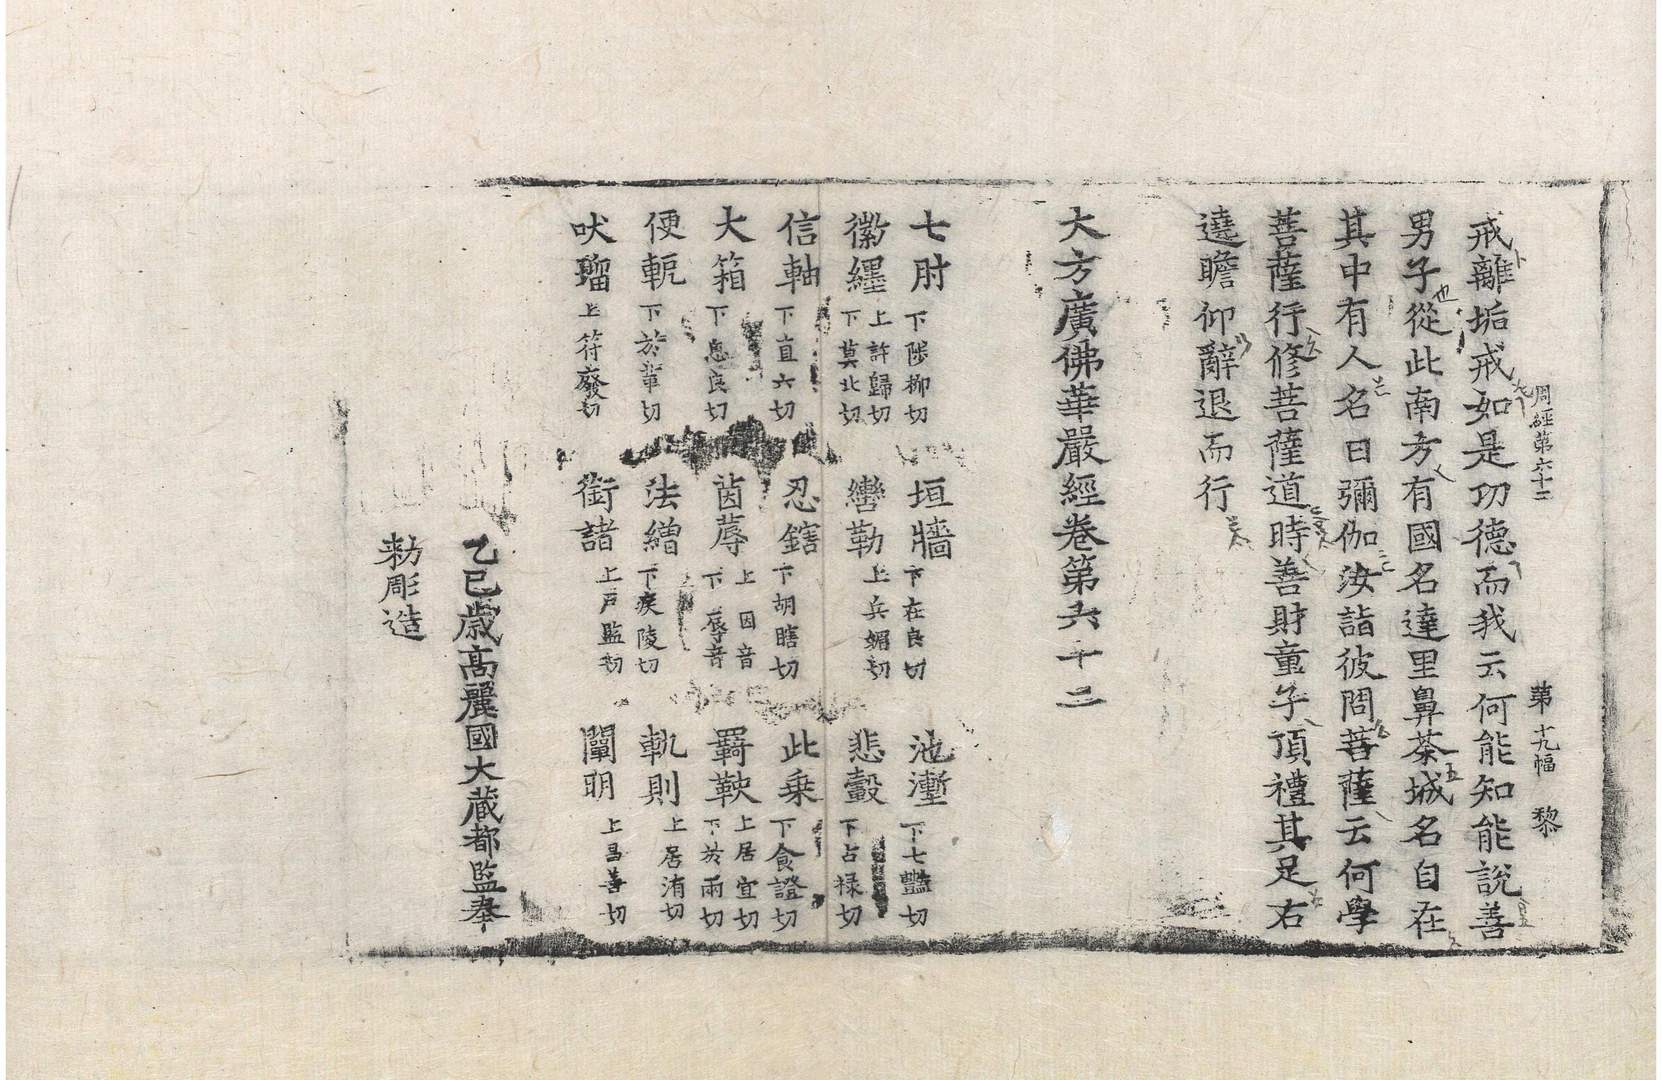 周經第六十二 第十九幅 黎
戒離垢戒如是功德而我云何能知能說善
男子從此南方有國名達里鼻茶城名自在
其中有人名曰彌伽汝詣彼問菩薩云何學
菩薩行修菩薩道時善財童子頂禮其足右
遶瞻仰辭退而行
大方廣佛華嚴經卷第六十二
七肘 下陟柳切 垣牆 下在良切 池塹 下七豔切
徽纆 上許歸切下莫北切 轡勒 上兵媚切 悲轂 下占祿切
信軸 下直六切 忍鎋 下胡瞎切 此乗 下食證切
大箱 下息良切 茵蓐 上因音下辱音 羇鞅 上居宜切下於兩切
便軛 下於革切 法繒 下疾陵切 軌則 上居洧切
吠瑠 上符廢切 銜諸 上戶監切 闡明 上昌善切
乙巳歲高麗國大藏都監奉
勅彫造